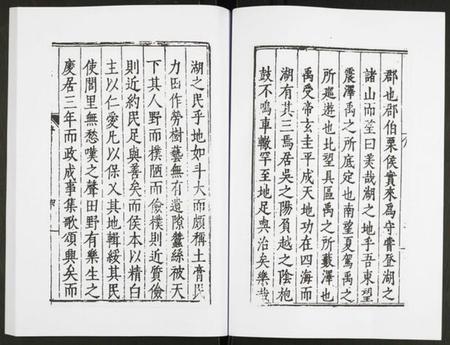 郡也郡伯栗侯實來爲守嘗登湖之
諸山而望曰美哉湖之地乎吾東望
震澤禹之所底定也南望夏駕禹之
所巡遊也北望具區禹之所藪澤也
禹受帝玄圭平成天地功在四海而
湖有其三焉居吳之陽負越之陰枹
鼓不鳴車轍罕至地足與治矣樂哉
湖之民乎地如斗大而頗稱土膏民
力函作勞樹藝無有遺隙蠶絲被天
下其人野而樸陋而儉樸則近質儉
則近約民足與善矣而侯本以精白
主以仁愛凡以保乂其地輯綏其民
使閭里無愁嘆之聲田野有樂生之
慶居三年而政成事集歌頌興矣而